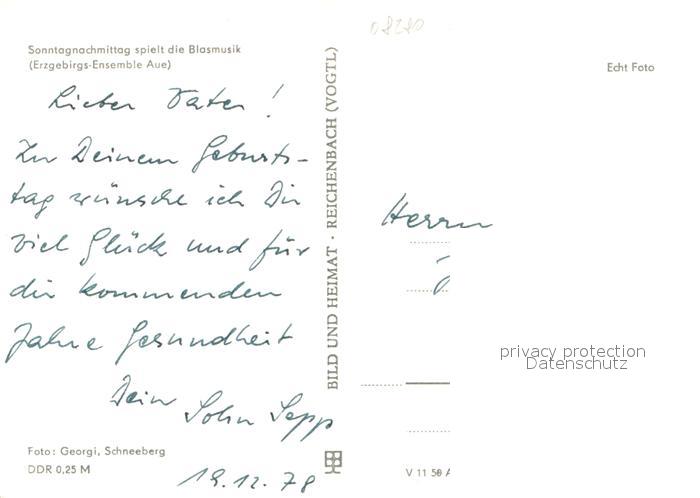 08280
Sonntagnachmittag spielt die Blasmusik
(Erzgebirgs-Ensemble Aue)
Echt Foto
Lieber Vater!
Zu Deinem Geburts-
tag wünsche ich Dir
viel Glück und für
die kommenden
Jahre Gesundheit
Dein Sohn Sepp
19.12.78
Foto: Georgi, Schneeberg
DDR 0,25 M
BILD UND HEIMAT · REICHENBACH (VOGTL)
Herrn
privacy protection
Datenschutz
V 11 50 A